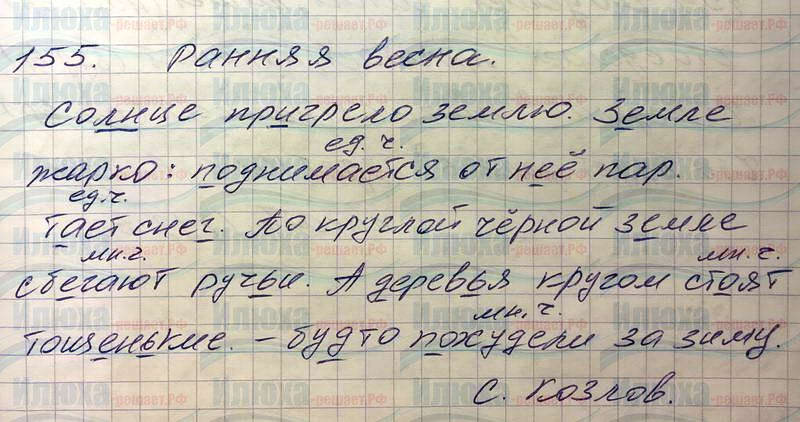 155. Ранняя весна.
Солнце пригрело землю. Земле
ед. ч.
жарко: поднимается от неё пар.
ед. ч.
Тает снег. По круглой чёрной земле
мн. ч. мн. ч.
сбегают ручьи. А деревья кругом стоят
мн. ч.
тощенькие. – будто похудели за зиму.
С. Козлов.